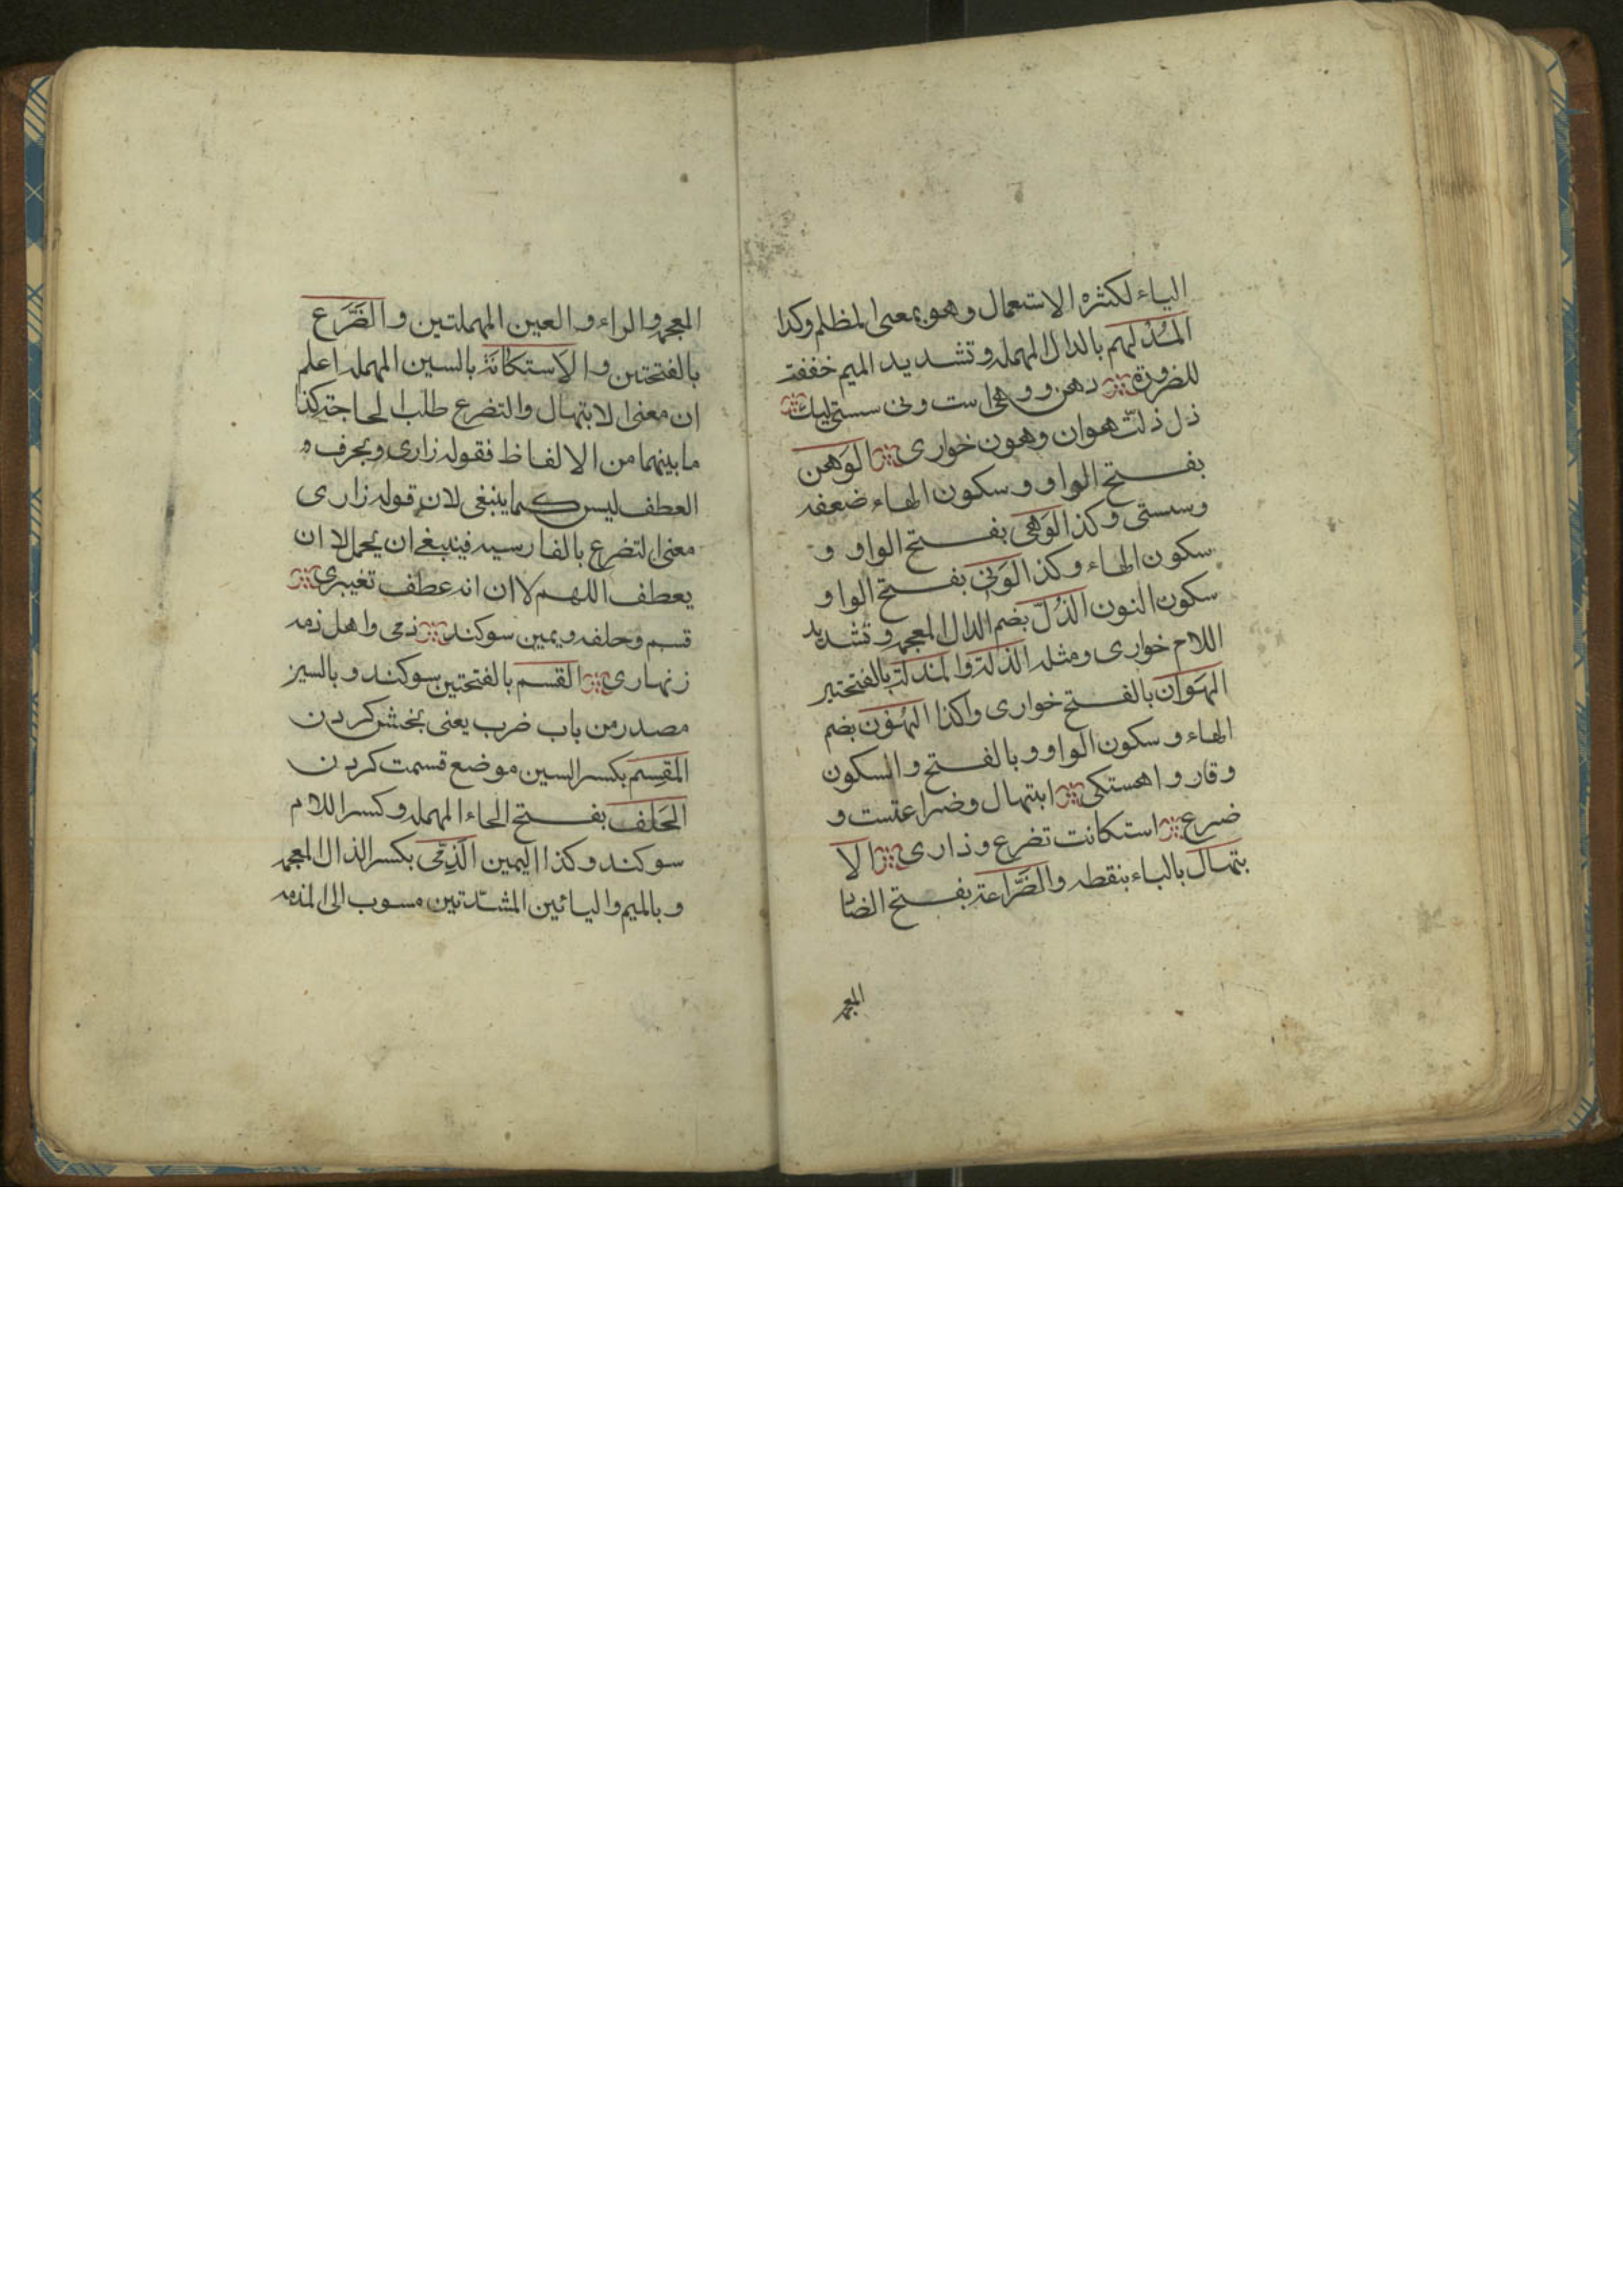 الياء لكثرة الاستعمال وهو بمعنى المظلم وكذا
المُدْلهم بالدال المهمله وتشديد الميم خففت
للضرورة وهن ووهى است ونى سستى ليك
ذل ذلت هوان وهون خوارى الوَهن
بفتح الواو وسكون الهاء ضعفه
وسستى وكذ الوَهى بفتح الواو و
سكون الهاء وكذ الوَنى بفتح الواو
سكون النون الذُلّ بضم الدال المعجمه وتشديد
اللام خوارى ومثله الذلة والمذلة بالفتحتين
الهَوان بالفتح خوارى وكذا الهُون بضم
الهاء وسكون الواو وبالفتح والسكون
وقار واهستكى ابتهال وضراعتست و
ضرع استكانت تضرع وذارى الا
بتهال بالباء بنقطه والضَّراعة بفتح الضاد
المعجمه
المعجمه والراء والعين المهملتين والضَّرَع
بالفتحتين والاستكانة بالسين المهمله اعلم
ان معنى الابتهال والتضرع طلب الحاجة كذا
ما بينهما من الالفاظ فقوله زارى وبحرف و
العطف ليس كما ينبغى لان قوله زارى
معنى التضرع بالفارسيه فينبغى ان يحمل لا ان
يعطف اللهم لا ان انه عطف تغييرى
قسم وحلفه ويمين سوكند ذمى واهل ذمه
زنهارى القسم بالفتحتين سوكند وبالسين
مصدر من باب ضرب يعنى بخش كردن
المقسِم بكسر السين موضع قسمت كردن
الحَلِف بفتح الحاء المهمله وكسر اللام
سوكند وكذا اليمين الذِمّى بكسر الذال المعجمه
وبالميم واليائين المشدّدتين مسوب الى الذمه